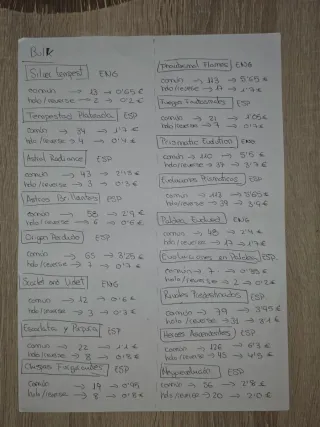 Bulk
Silver Tempest ENG
común → 13 → 0'65€
holo/reverse → 2 → 0'2€
Tempestad Plateada ESP
común → 34 → 1'7€
holo/reverse → 4 → 0'4€
Astral Radiance ESP
común → 43 → 2'15€
holo/reverse → 3 → 0'3€
Astros Brillantes ESP
común → 58 → 2'9€
holo/reverse → 6 → 0'6€
Origen Perdido ESP
común → 65 → 3'25€
holo/reverse → 7 → 0'7€
Scarlet and Violet ENG
común → 12 → 0'6€
holo/reverse → 3 → 0'3€
Escarlata y Púrpura ESP
común → 22 → 1'1€
holo/reverse → 8 → 0'8€
Llamas Fantasmales ESP
común → 19 → 0'95
holo/reverse → 8 → 0'8€
Phantasmal Flames ENG
común → 113 → 5'65€
holo/reverse → 17 → 1'7€
ESP
común → 21 → 1'05€
holo/reverse → 7 → 0'7€
Prismatic Evolution ENG
común → 110 → 5'5€
holo/reverse → 37 → 3'7€
Evoluciones Prismáticas ESP
común → 113 → 5'65€
holo/reverse → 39 → 3'9€
Paldea Evolved ENG
común → 48 → 2'4€
holo/reverse → 17 → 1'7€
Evoluciones en Paldea ESP
común → 7 → 0'35€
holo/reverse → 2 → 0'2€
Rivales Predestinados ESP
común → 79 → 3'95€
holo/reverse → 31 → 3'1€
Héroes Ascendentes ESP
común → 126 → 6'3€
holo/reverse → 45 → 4'5€
Megaevolución ESP
común → 56 → 2'8€
holo/reverse → 20 → 2'0€